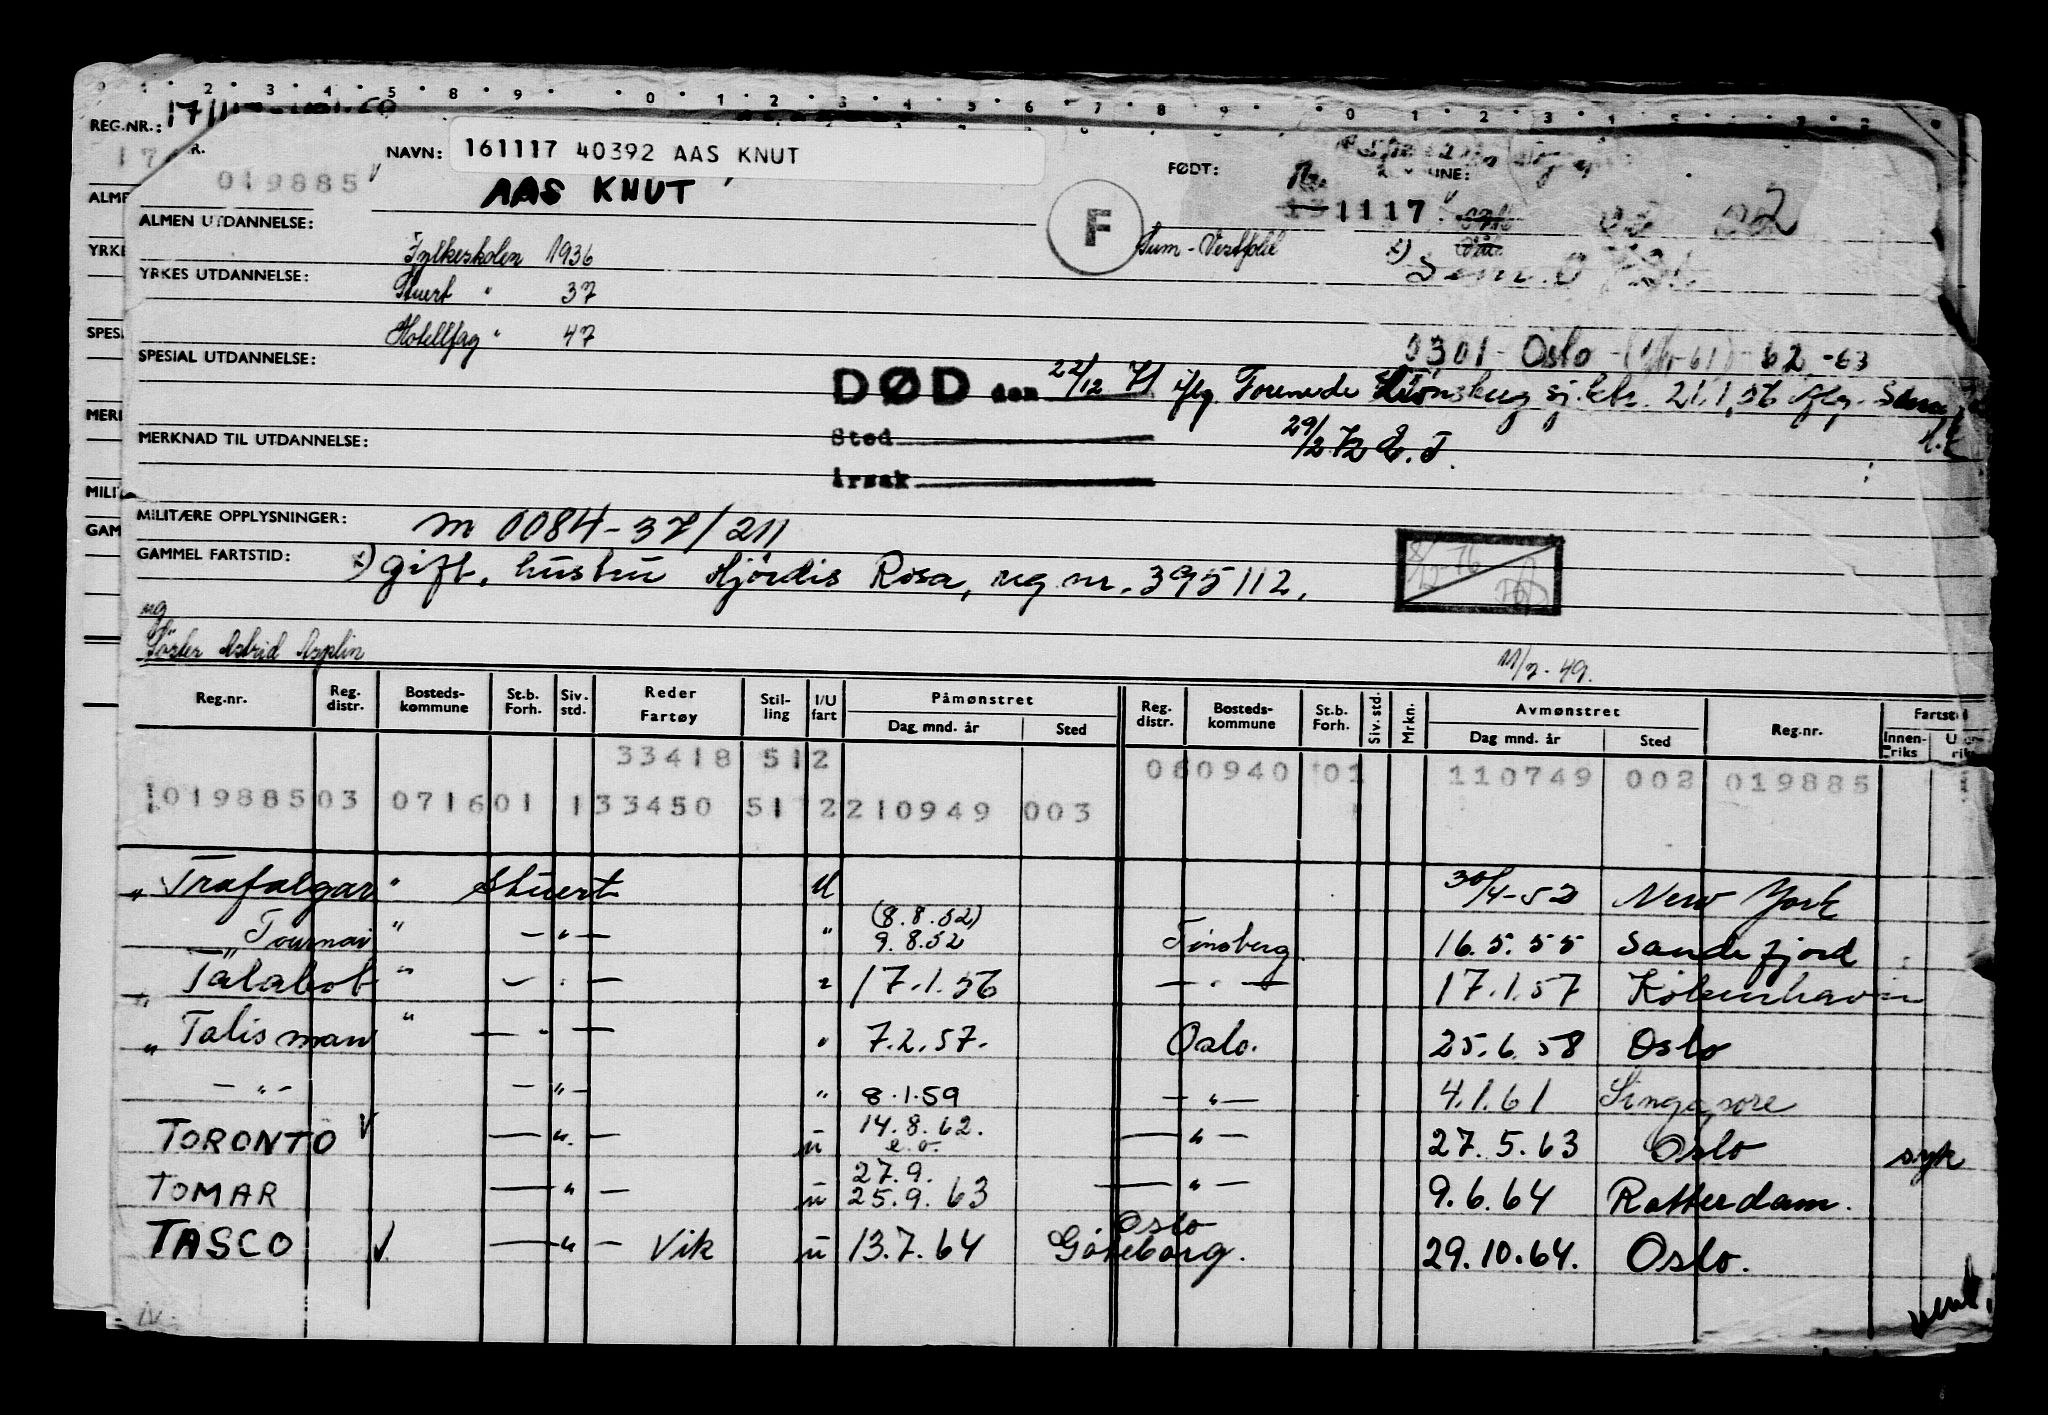 REG.NR.:
NAVN: 161117 40392 AAS KNUT
FØDT:
019885
AAS KNUT
F
1117
ALMEN UTDANNELSE:
Fylkesskolen 1936
Sem - Vestfold
YRKES UTDANNELSE:
Stuert " 37
Hotellfag " 47
0301 - Oslo - 62 - 63
SPESIAL UTDANNELSE:
DØD den 22/12 71 iflg. Forenede
21.1.56
Sted
29/2 72
MERKNAD TIL UTDANNELSE:
Årsak
MILITÆRE OPPLYSNINGER: M 0084-37/211
GAMMEL FARTSTID: x) gift, hustru Hjördis Rosa, reg nr. 395112.
Söster Astrid Asplin
11/7-49.
Reg.nr. Reg. distr. Bosteds- kommune St.b. Forh. Siv. std. Reder Fartøy Stil- ling I/U fart Påmønstret Dag mnd. år Sted Reg. distr. Bosteds- kommune St.b. Forh. Siv. std. Mrkn. Avmønstret Dag mnd. år Sted Reg.nr. Innen- riks
33418 512 060940 01 110749 002 019885
019885 03 0716 01 1 33450 51 2 210949 003
" Trafalgar " Stuert U 30/4-52 New York
(8.8.52)
" Tournai " — " — " 9.8.52 Tönsberg 16.5.55 Sandefjord
" Talabot " — " — " 17.1.56 — " — 17.1.57 København
" Talisman " — " — " 7.2.57. Oslo. 25.6.58 Oslo
— " — — " — " 8.1.59 — " — 4.1.61 Singapore
TORONTO — " — u 14.8.62. e.o. — " — 27.5.63 Oslo syk
27.9.
TOMAR — " — u 25.9.63 — " — 9.6.64 Rotterdam.
Oslo
TASCO — " — Vik u 13.7.64 Göteborg. 29.10.64. Oslo.
vend.